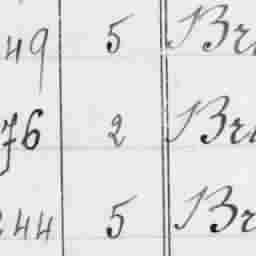 49 5 Br
76 2 Br
244 5 Br